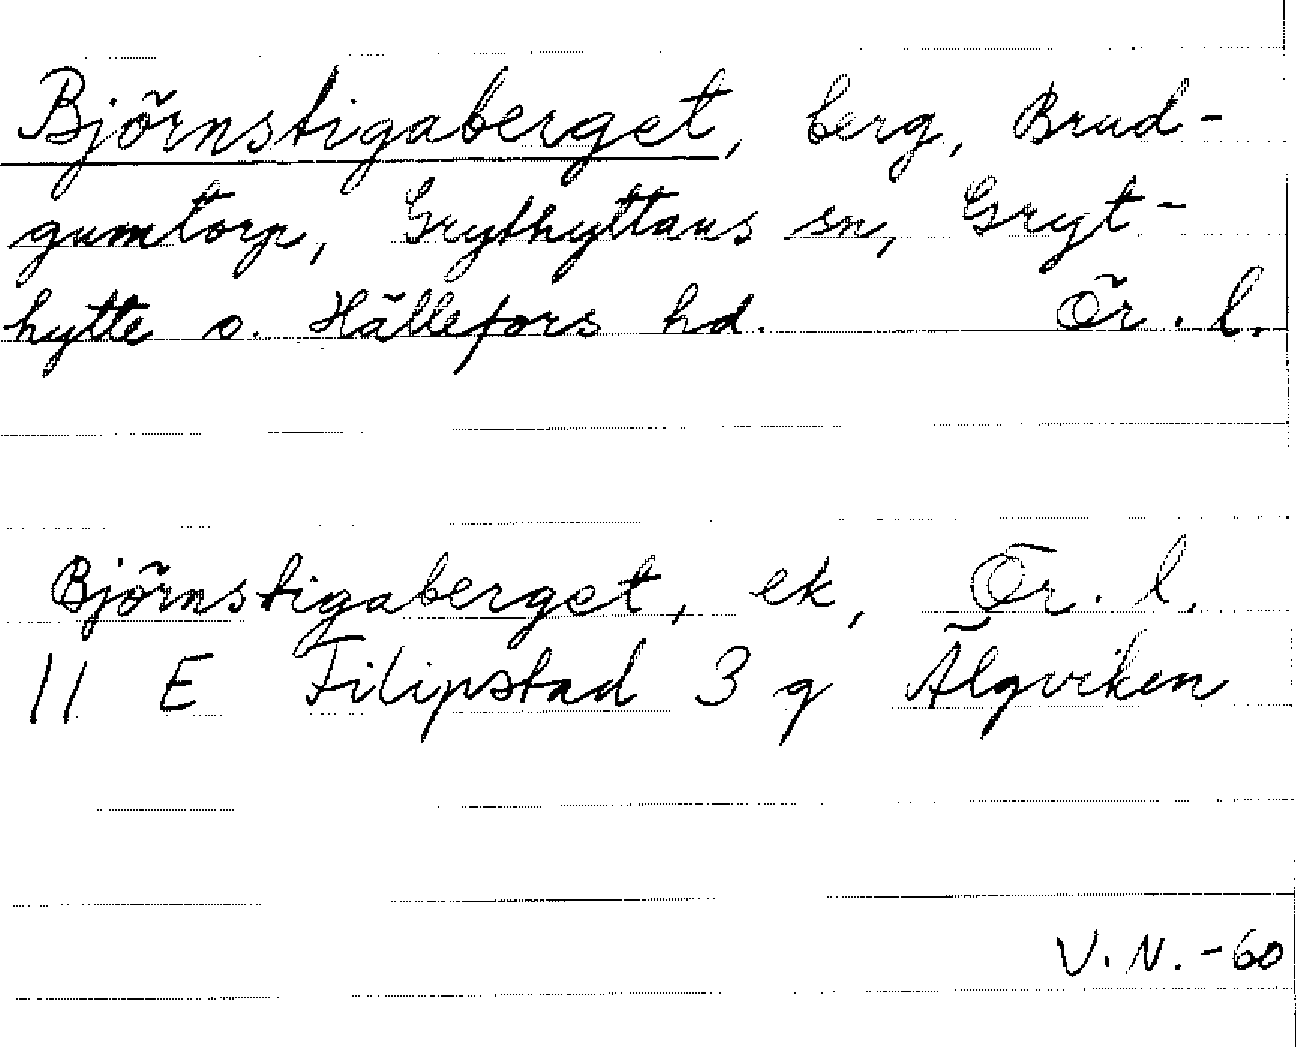 Björnstigaberget, berg, Brud-
gumtorp, Grythyttans sn, Gryt-
hytte o. Hällefors hd. Ör. l.
Björnstigaberget, ek, Ör. l.
11 E Filipstad 3 g Älgviken
V. N. -60